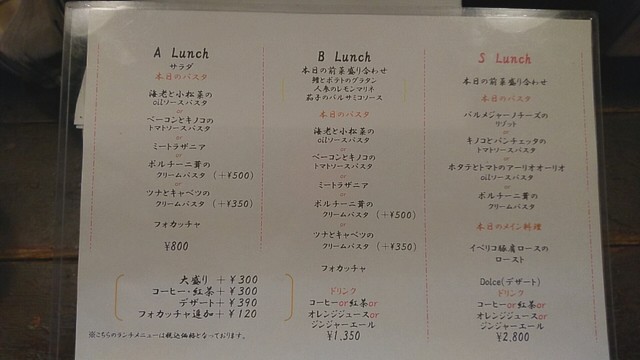 A Lunch
サラダ
本日のパスタ
海老と小松菜の
oilソースパスタ
or
ベーコンとキノコの
トマトソースパスタ
or
ミートラザニア
or
ポルチーニ茸の
クリームパスタ (+¥500)
or
ツナとキャベツの
クリームパスタ (+¥350)
フォカッチャ
¥800
大盛り + ¥300
コーヒー・紅茶 + ¥300
デザート + ¥390
フォカッチャ追加 + ¥120
※こちらのランチメニューは税込価格となっております。
B Lunch
本日の前菜盛り合わせ
鱈とポテトのグラタン
人参のレモンマリネ
茄子のバルサミコソース
本日のパスタ
海老と小松菜の
oilソースパスタ
or
ベーコンとキノコの
トマトソースパスタ
or
ミートラザニア
or
ポルチーニ茸の
クリームパスタ (+¥500)
or
ツナとキャベツの
クリームパスタ (+¥350)
フォカッチャ
ドリンク
コーヒーor紅茶or
オレンジジュースor
ジンジャーエール
¥1,350
S Lunch
本日の前菜盛り合わせ
本日のパスタ
パルメジャーノチーズの
リゾット
or
キノコとパンチェッタの
トマトソースパスタ
or
ホタテとトマトのアーリオオーリオ
oilソースパスタ
or
ポルチーニ茸の
クリームパスタ
本日のメイン料理
イベリコ豚肩ロースの
ロースト
Dolce(デザート)
ドリンク
コーヒーor紅茶or
オレンジジュースor
ジンジャーエール
¥2,800